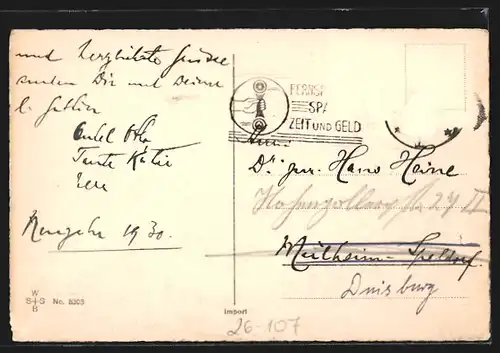 und herzlichste Grüsse
senden Dir und Deiner
l. Gattin
Onkel Otto
Tante Käthe
Neujahr 1930.
FERNSP
SPA
ZEIT UND GELD
Herrn
Dr. jur. Hans Heine
Hohenzollernstr. 27 II
Mülheim-Speldorf
Duisburg
W
S+G No. 8303
B
Import
26-107